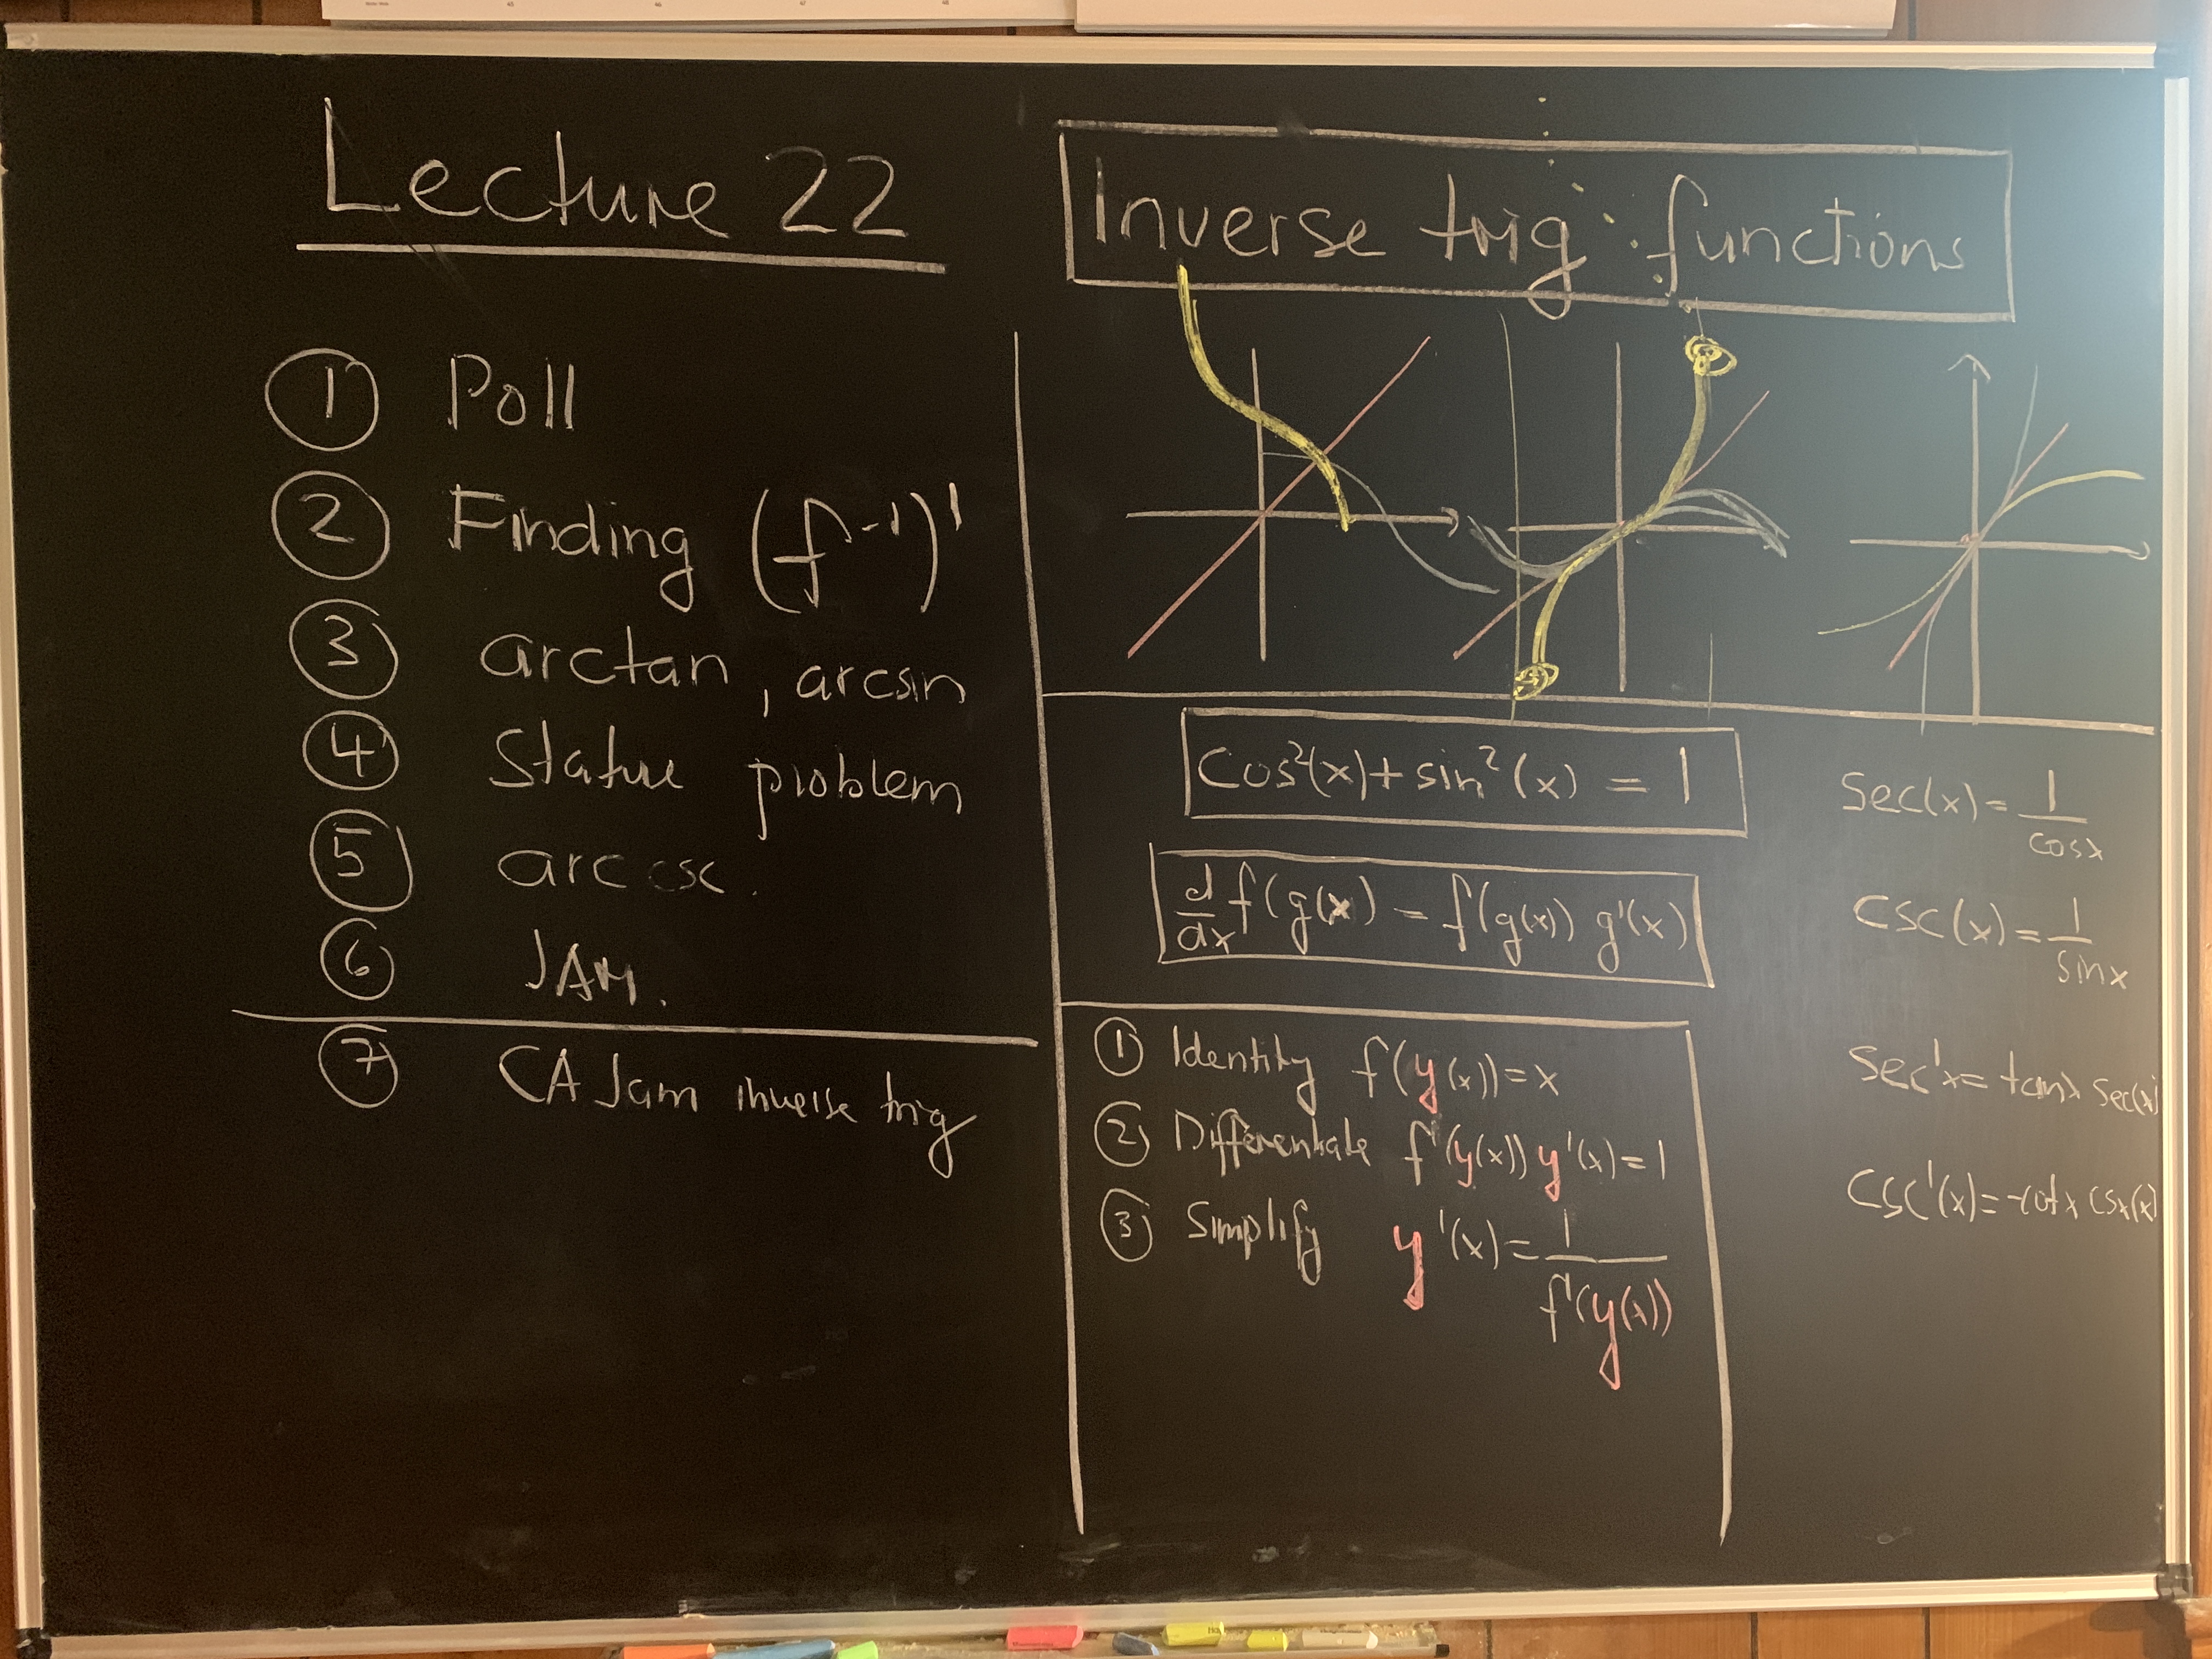 Lecture 22
① Poll
② Finding (f⁻¹)'
③ arctan, arcsin
④ Statue problem
⑤ arc csc.
⑥ JAM.
⑦ CA Jam inverse trig
Inverse trig functions
cos²(x)+sin²(x) = 1
d/dx f(g(x) = f'(g(x)) g'(x)
① Identity f(y(x))=x
② Differentiate f'(y(x)) y'(x)=1
③ Simplify y'(x)=1/f'(y(x))
sec(x)=1/cosx
csc(x)=1/sinx
sec'x= tanx sec(x)
csc'(x)=-cotx csx(x)
45 46 47 48